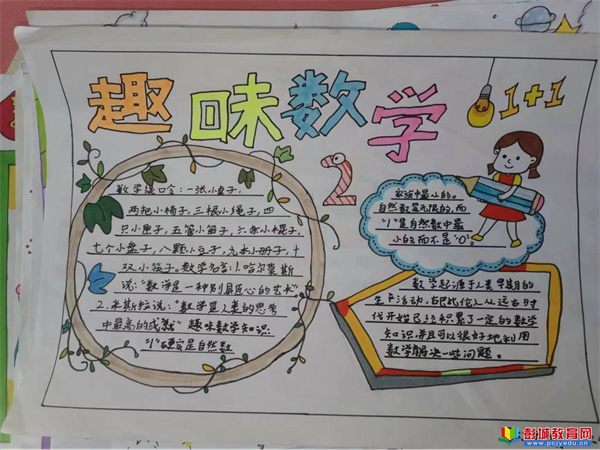 趣味数学
1+1
2
数学绕口令:一张小桌子,
两把小椅子,三根小绳子,四
只小匣子,五管小笛子,六条小棍子,
七个小盘子,八颗小豆子,九本小册子,十
双小筷子。数学名言:1.哈尔莫斯
说:"数学是一种别具匠心的艺术"
2.米斯拉说:"数学是人类的思考
中最高的成就" 趣味数学知识:
"1"确实是自然数
家族中最小的。
自然数是无限的,而
"1"是自然数中最
小的,而不是"0"。
数学起源于人类早期的
生产活动,古巴比伦人从远古时
代开始已经积累了一定的数学
知识,并且可以很好地利用
数学解决一些问题。
彭城教育网
www.pcjyedu.cn